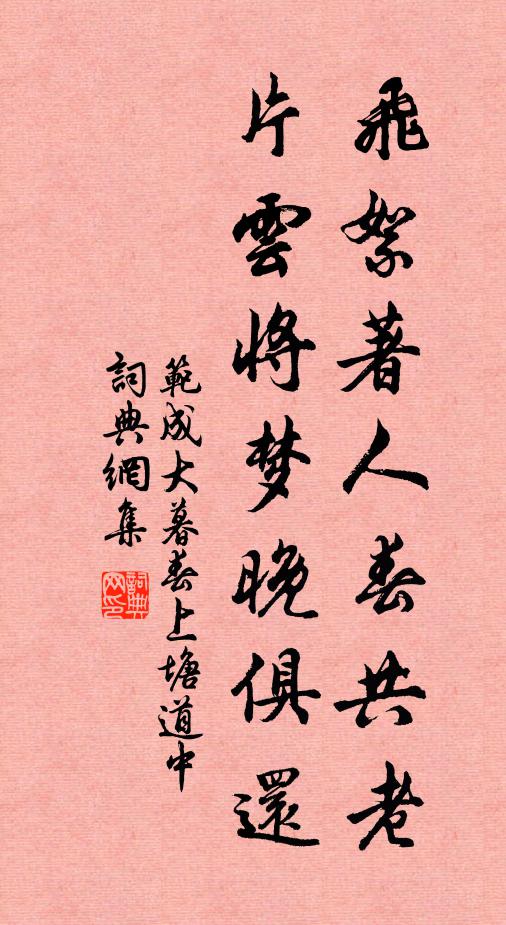 飛絮著人春共老
片雲將梦晚俱還
範成大暮春上塘道中
詞典網集
詞典网印